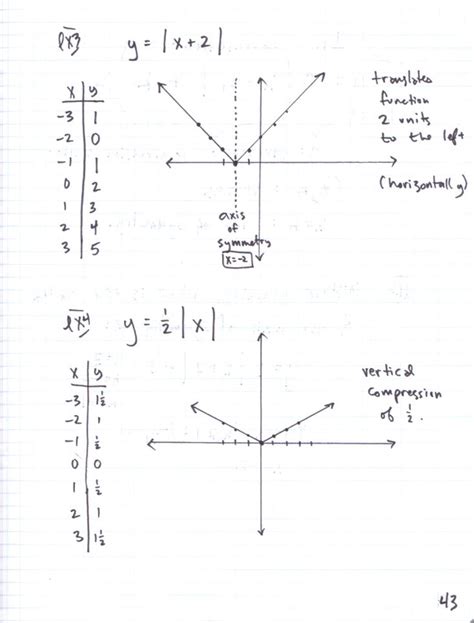 ex3 y = |x+2|
x y
-3 1
-2 0
-1 1
0 2
1 3
2 4
3 5
translates
function
2 units
to the left
(horizontally)
axis
of
symmetry
x=-2
ex4 y = ½|x|
x y
-3 1½
-2 1
-1 ½
0 0
1 ½
2 1
3 1½
vertical
compression
of ½.
43